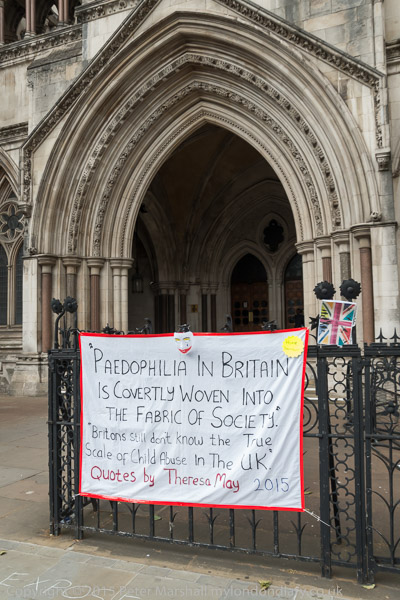 "PAEDOPHILIA IN BRITAIN
IS COVERTLY WOVEN INTO
THE FABRIC OF SOCIETY."
"Britons still don't know the True
Scale of Child Abuse In The UK."
Quotes by Theresa May 2015
EXPO
Peter Marshall mylondondiary.co.uk